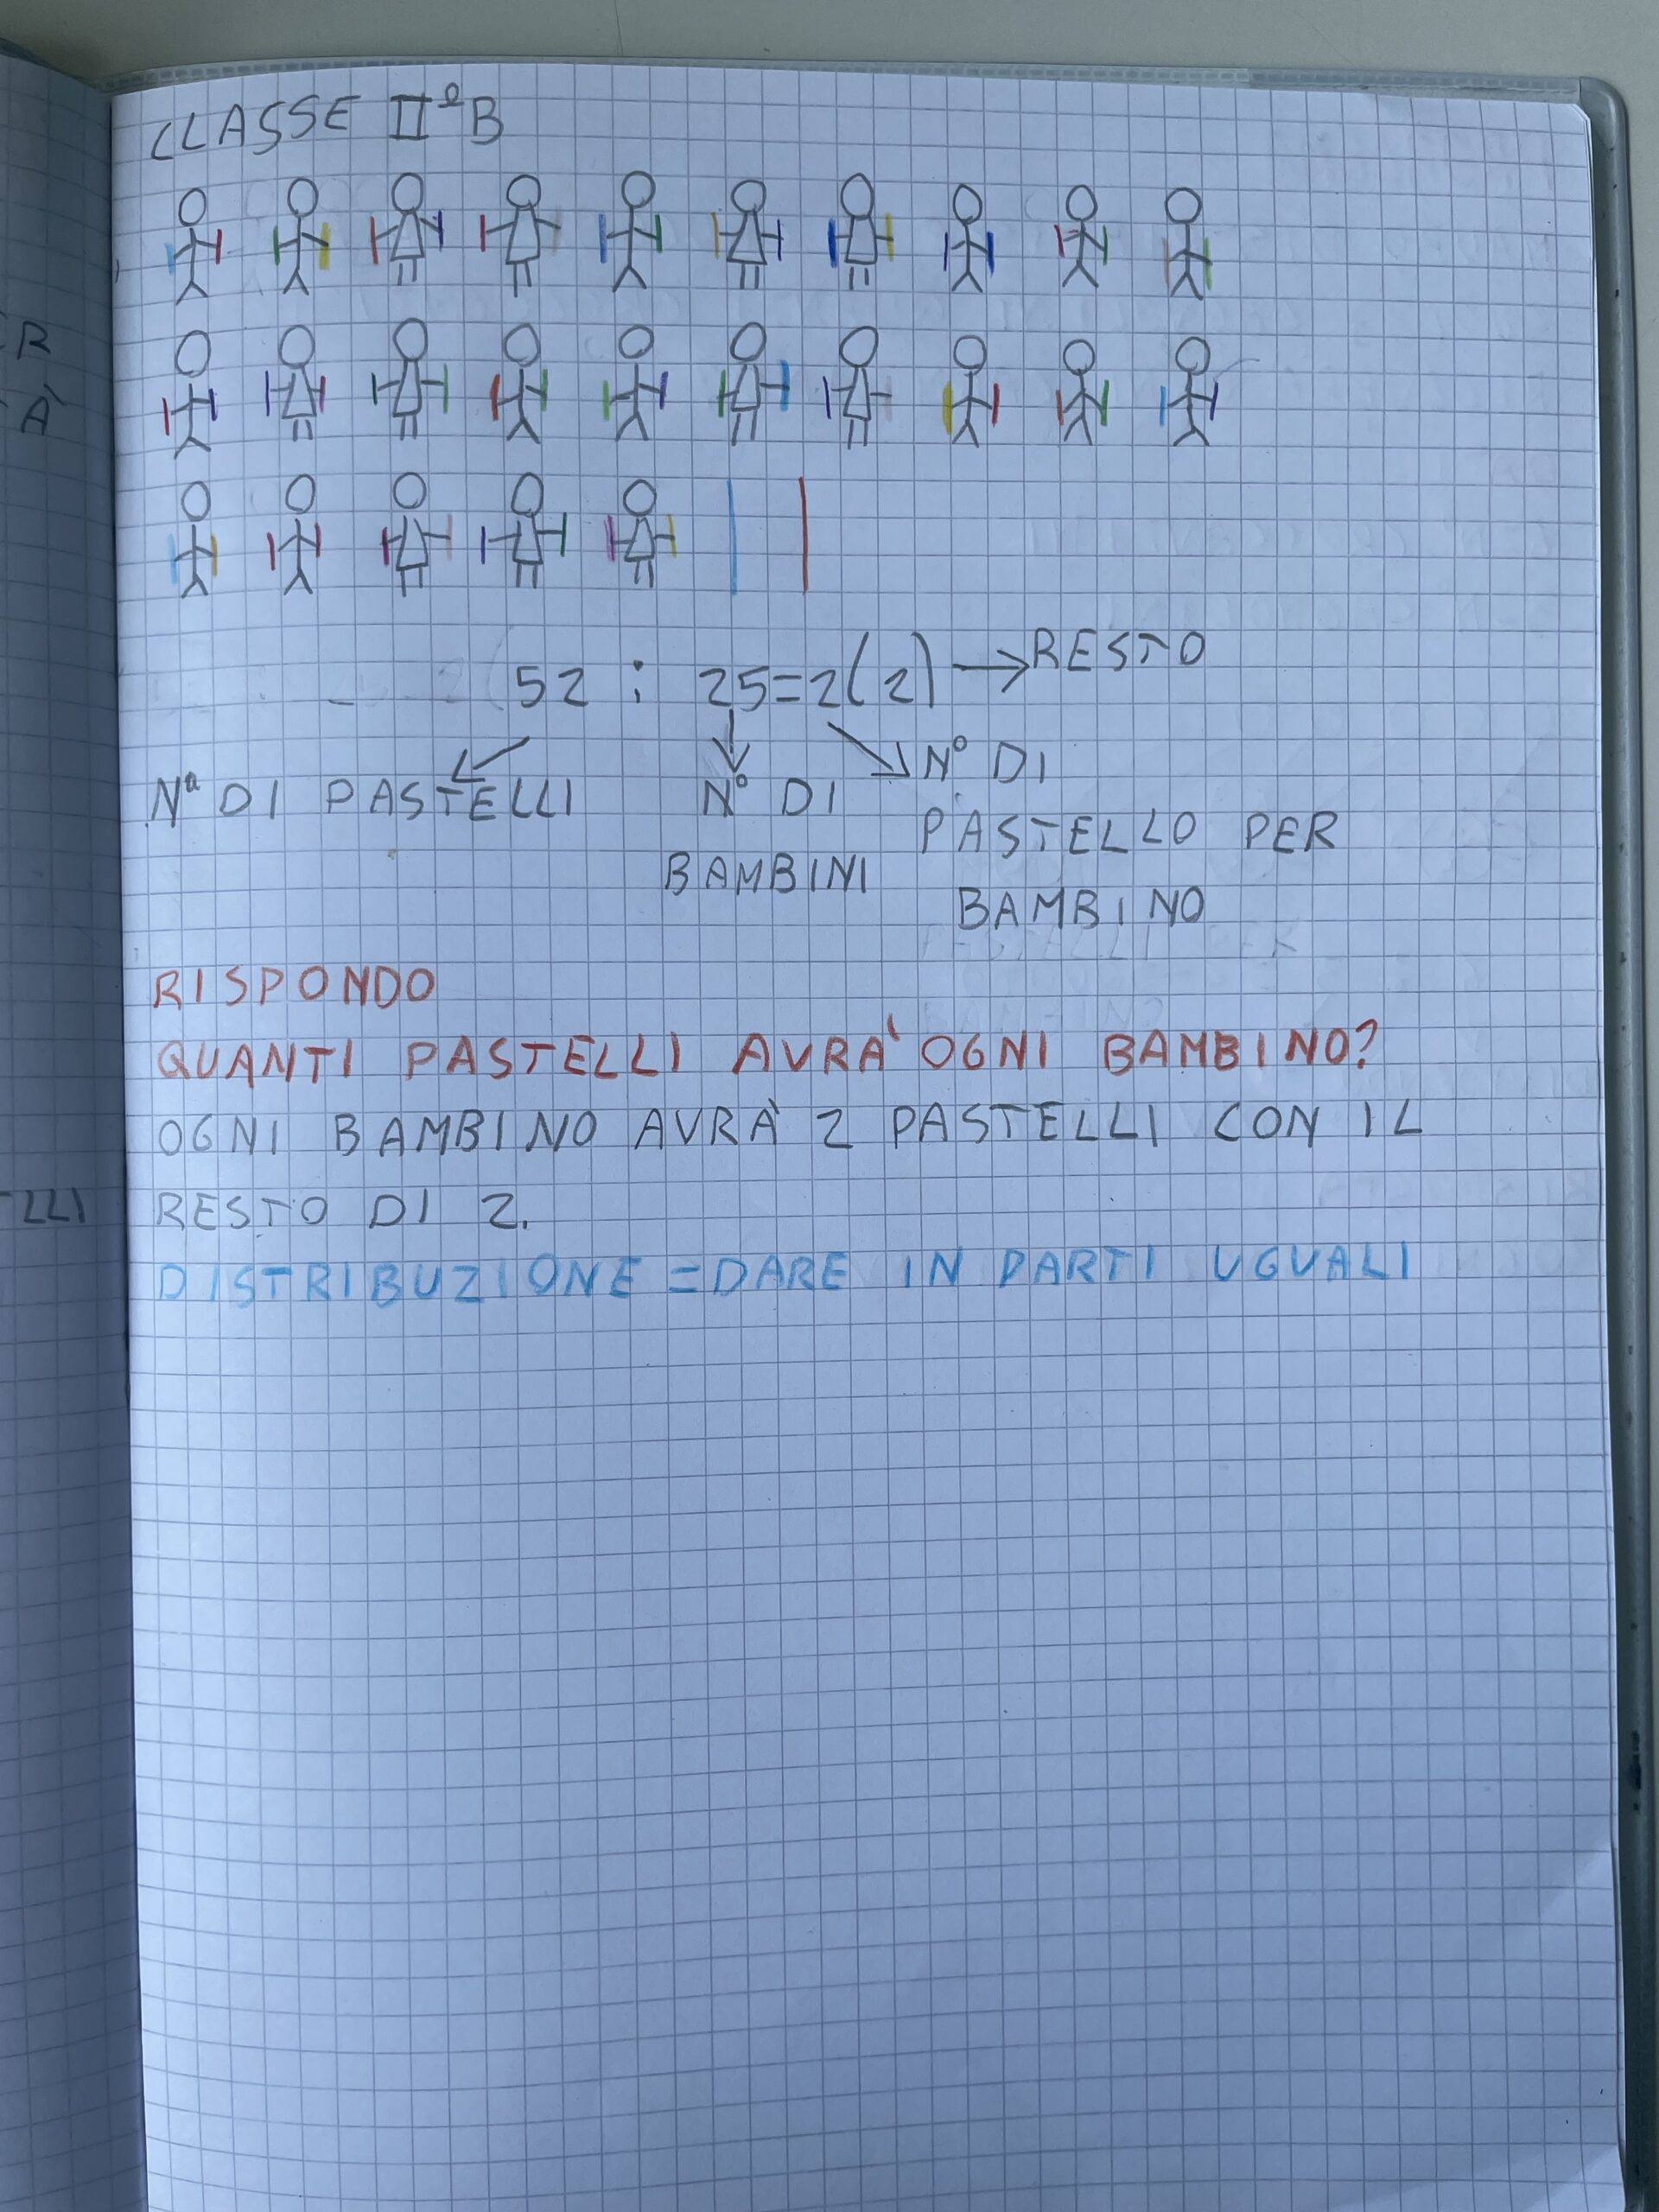 CLASSE IIªB
52 : 25=2(2) → RESTO
Nª DI PASTELLI
N° DI
BAMBINI
N° DI
PASTELLO PER
BAMBINO
RISPONDO
QUANTI PASTELLI AVRÀ OGNI BAMBINO?
OGNI BAMBINO AVRÀ 2 PASTELLI CON IL
RESTO DI 2.
DISTRIBUZIONE = DARE IN PARTI UGUALI